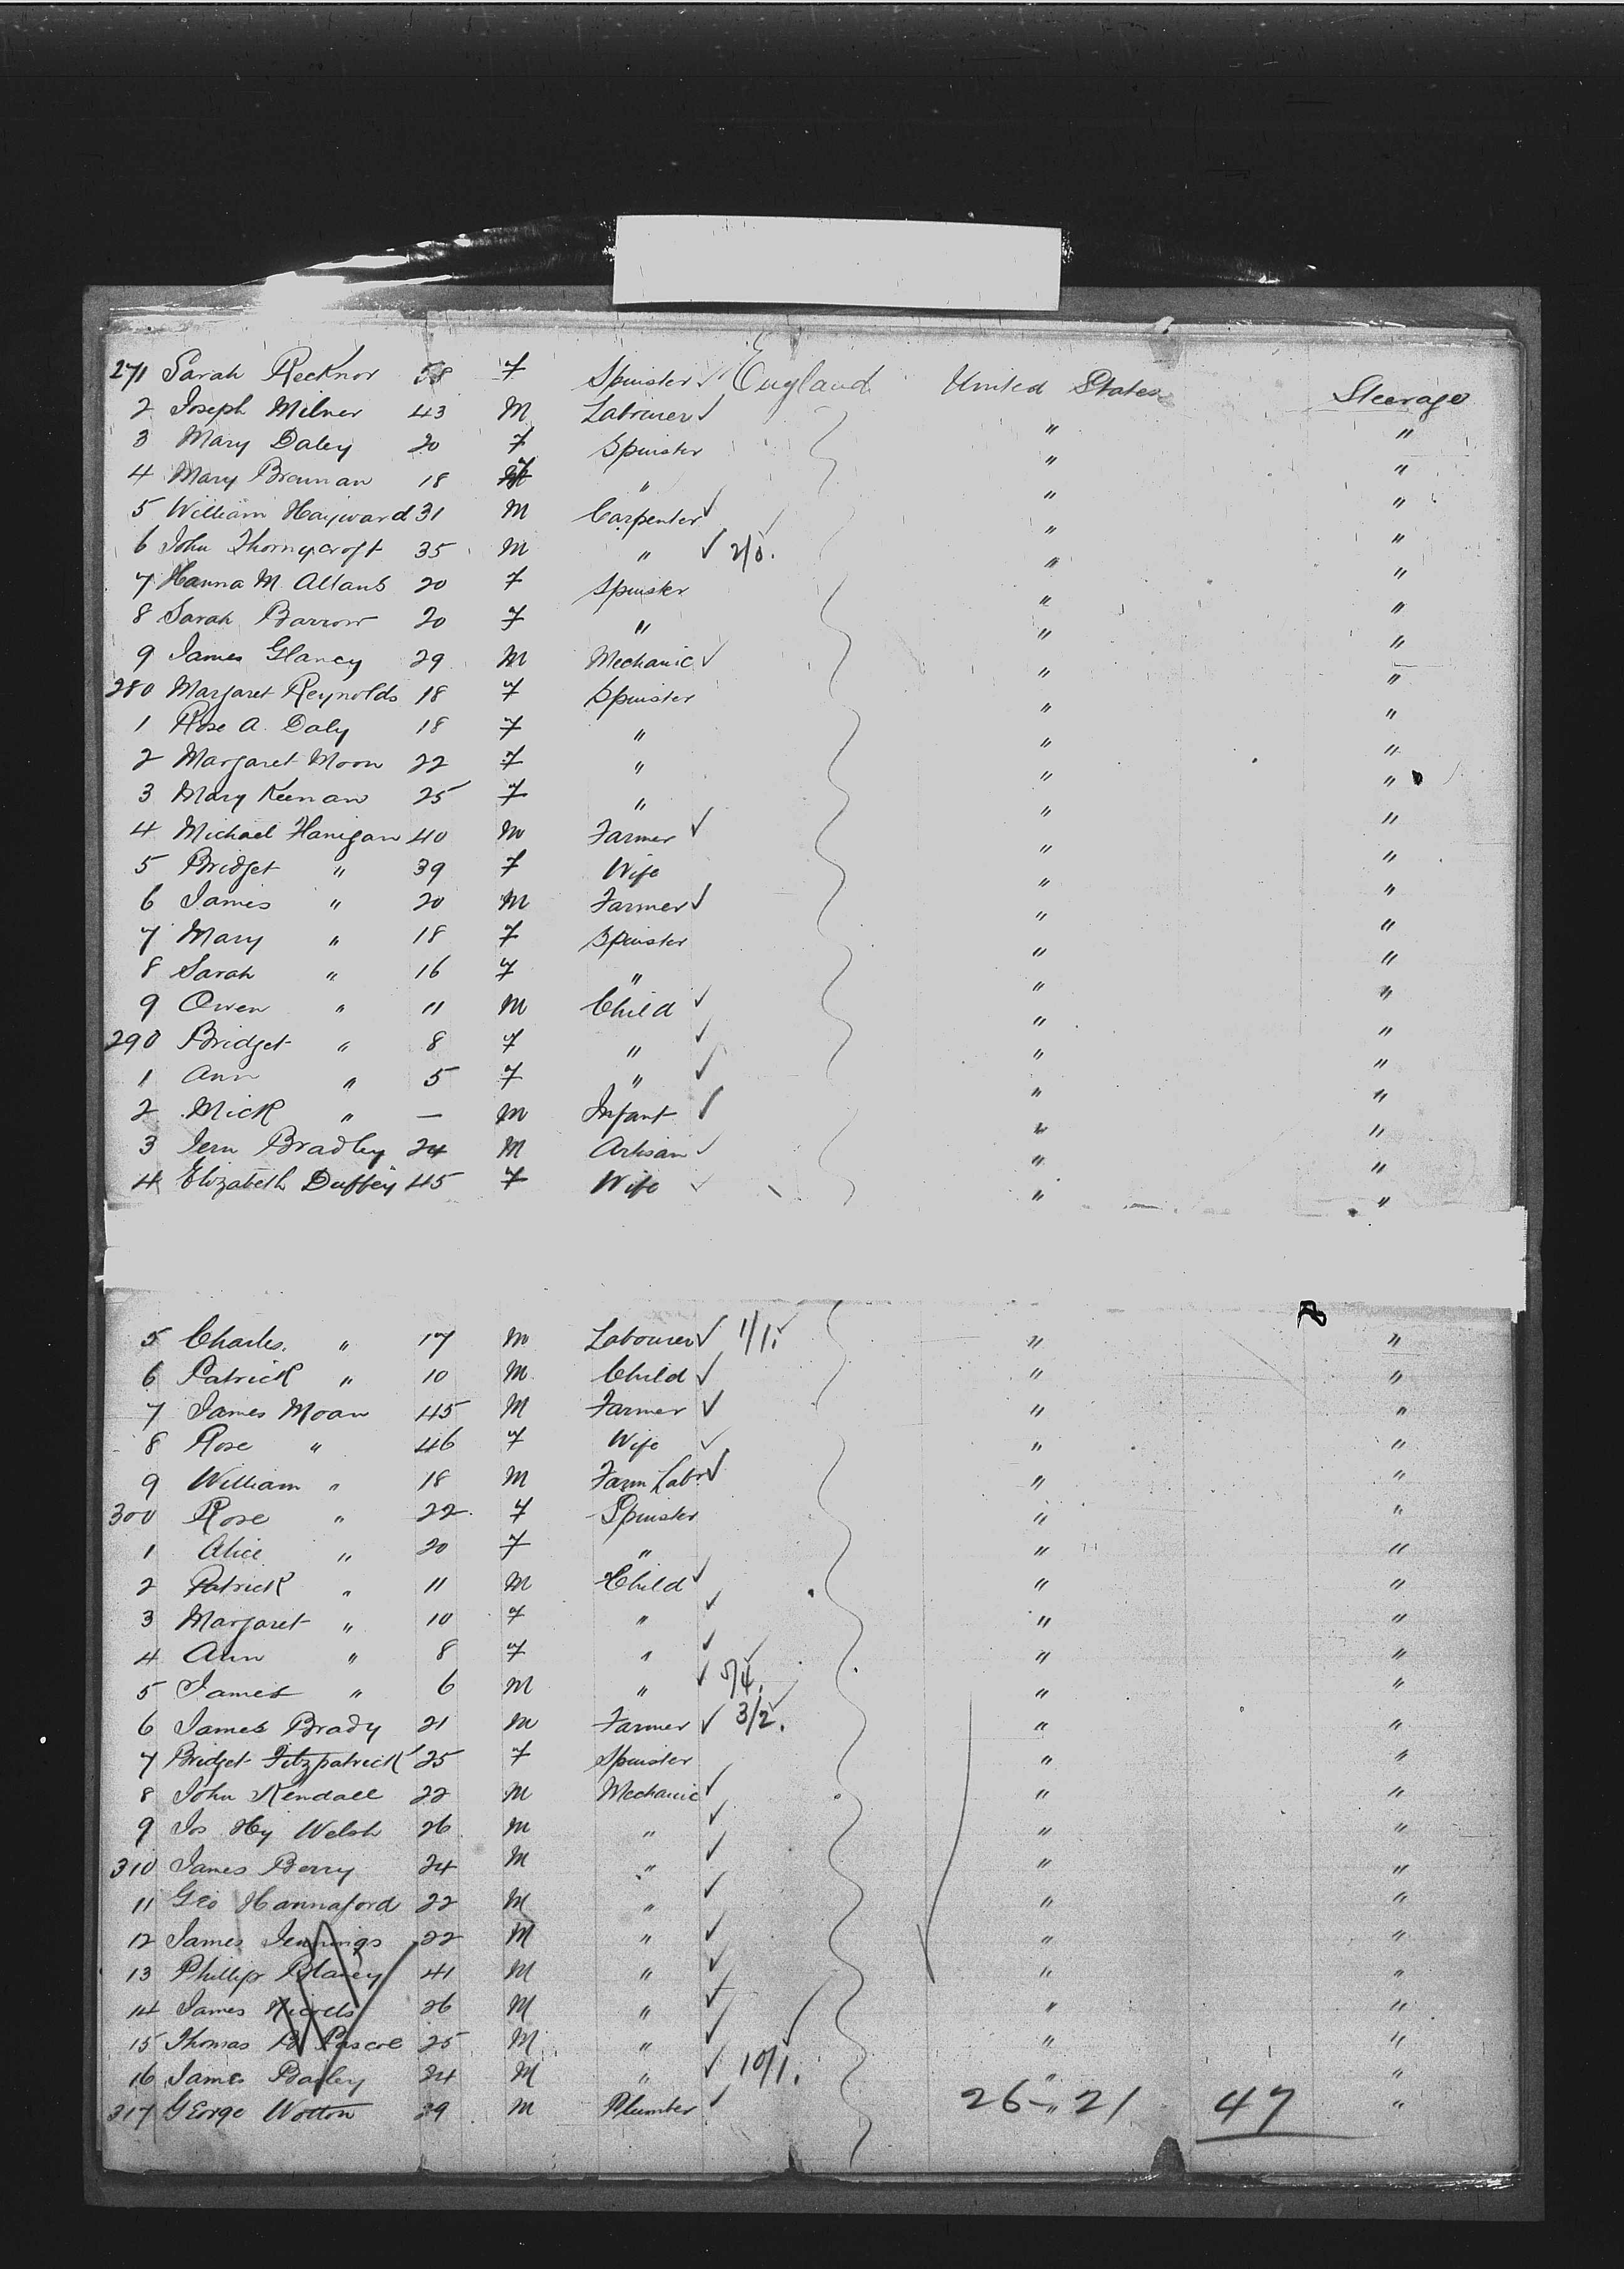 271 Sarah Recknor 58 F Spinster ✓ England United States Steerage
2 Joseph Milner 43 M Labourer ✓ " "
3 Mary Daley 20 F Spinster " "
4 Mary Brennan 18 F " " "
5 William Hayward 31 M Carpenter ✓ " "
6 John Thornycroft 35 M " ✓ 2/0. " "
7 Hanna M. 20 F Spinster " "
8 Sarah Barrow 20 F " " "
9 James Glancy 29 M Mechanic ✓ " "
280 Margaret Reynolds 18 F Spinster " "
1 Rose A. Daly 18 F " " "
2 Margaret Moon 22 F " " "
3 Mary Keenan 25 F " " "
4 Michael Hanigan 40 M Farmer ✓ " "
5 Bridget " 39 F Wife " "
6 James " 20 M Farmer ✓ " "
7 Mary " 18 F Spinster " "
8 Sarah " 16 F " " "
9 Owen " 11 M Child ✓ " "
290 Bridget " 8 F " ✓ " "
1 Ann " 5 F " ✓ " "
2 Mick " — M Infant ✓ " "
3 Bradley 24 M Artisan ✓ " "
4 Elizabeth Duffey 45 F Wife ✓ " "
5 Charles. " 17 M Labourer ✓ 1/1. " "
6 Patrick " 10 M Child ✓ " "
7 James Moan 45 M Farmer ✓ " "
8 Rose " 46 F Wife ✓ " "
9 William " 18 M Farm Labr ✓ " "
300 Rose " 22 F Spinster " "
1 Alice " 20 F " " "
2 Patrick " 11 M Child ✓ " "
3 Margaret " 10 F " ✓ " "
4 Ann " 8 F " ✓ " "
5 James " 6 M " ✓ 5/4. " "
6 James Brady 21 M Farmer ✓ 3/2. " "
7 Bridget Fitzpatrick 25 F Spinster " "
8 John Kendall 22 M Mechanic ✓ " "
9 Jos Hy Welsh 26 M " ✓ " "
310 James Berry 24 M " ✓ " "
11 Geo Hannaford 22 M " ✓ " "
12 James Jennings 22 M " ✓ " "
13 Phillip Blaney 41 M " ✓ " "
14 James 26 M " ✓ " "
15 Thomas Pascoe 25 M " ✓ " "
16 James 24 M " ✓ 10/1. " "
317 George Wotton 29 M Plumber ✓ " "
26 - 21 47